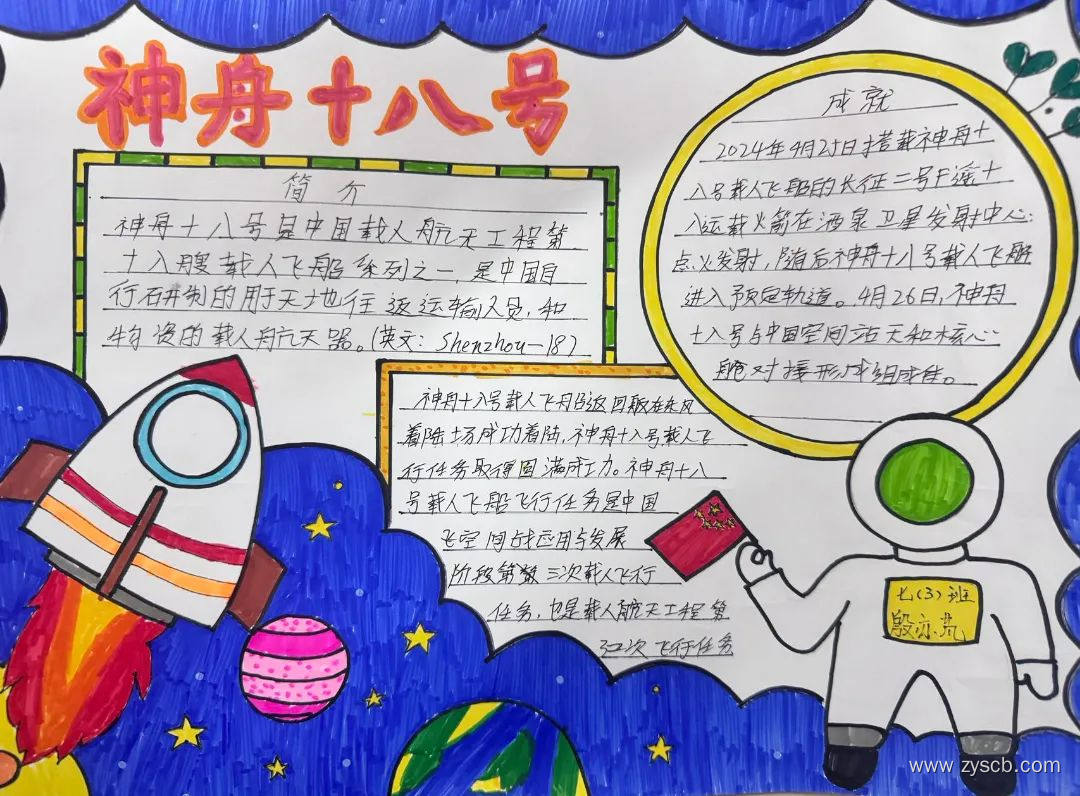 神舟十八号
简介
神舟十八号是中国载人航天工程第
十八艘载人飞船系列之一,是中国自
行研制的用于天地往返运输人员,和
物资的载人航天器。(英文: Shenzhou-18)
成就
2024年4月25日搭载神舟十
八号载人飞船的长征二号F遥十
八运载火箭在酒泉卫星发射中心:
点火发射,随后神舟十八号载人飞船
进入预定轨道。4月26日,神舟
十八号与中国空间站天和核心
舱对接形成组成体。
神舟十八号载人飞船返回舱在东风
着陆场成功着陆,神舟十八号载人飞
行任务取得圆满成功。神舟十八
号载人飞船飞行任务是中国
飞空间站应用与发展
阶段第 三次载人飞行
任务,也是载人航天工程第
32次飞行任务
七(3)班
殷亦
www.zyscb.com